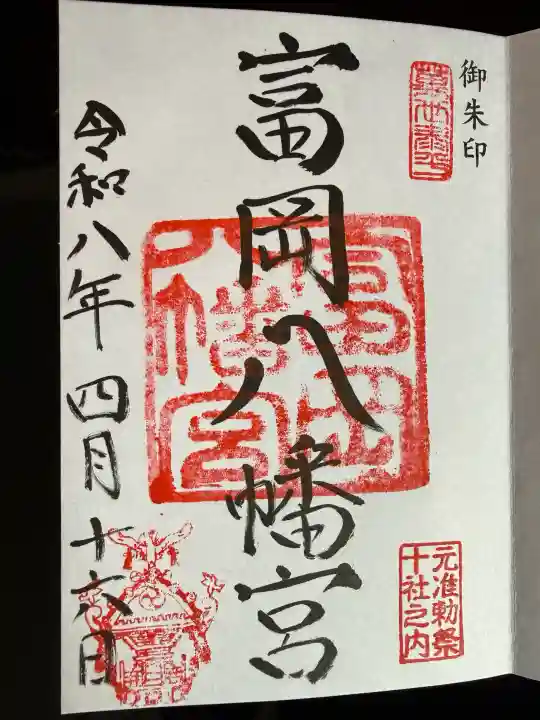 御朱印
萬世泰平
富岡八幡宮
富岡
八幡宮
元准勅祭
十社之内
令和八年四月十六日